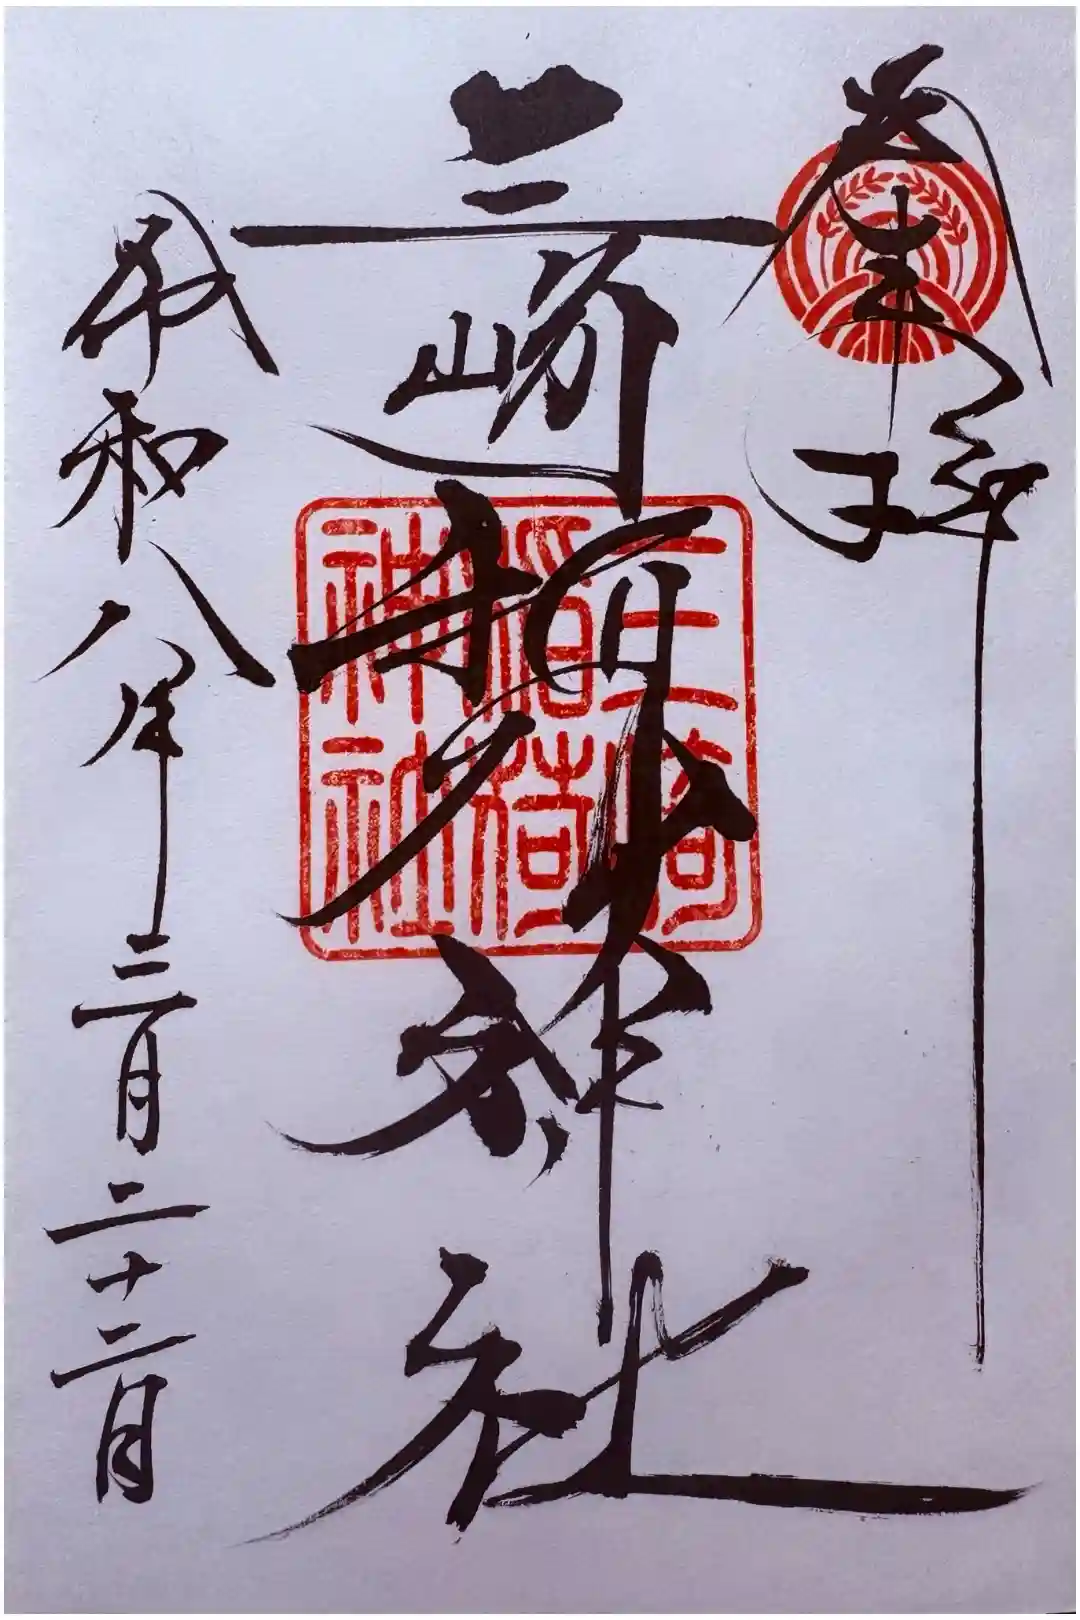 奉拝
三崎稲荷神社
三崎稲荷神社
令和八年三月二十二日